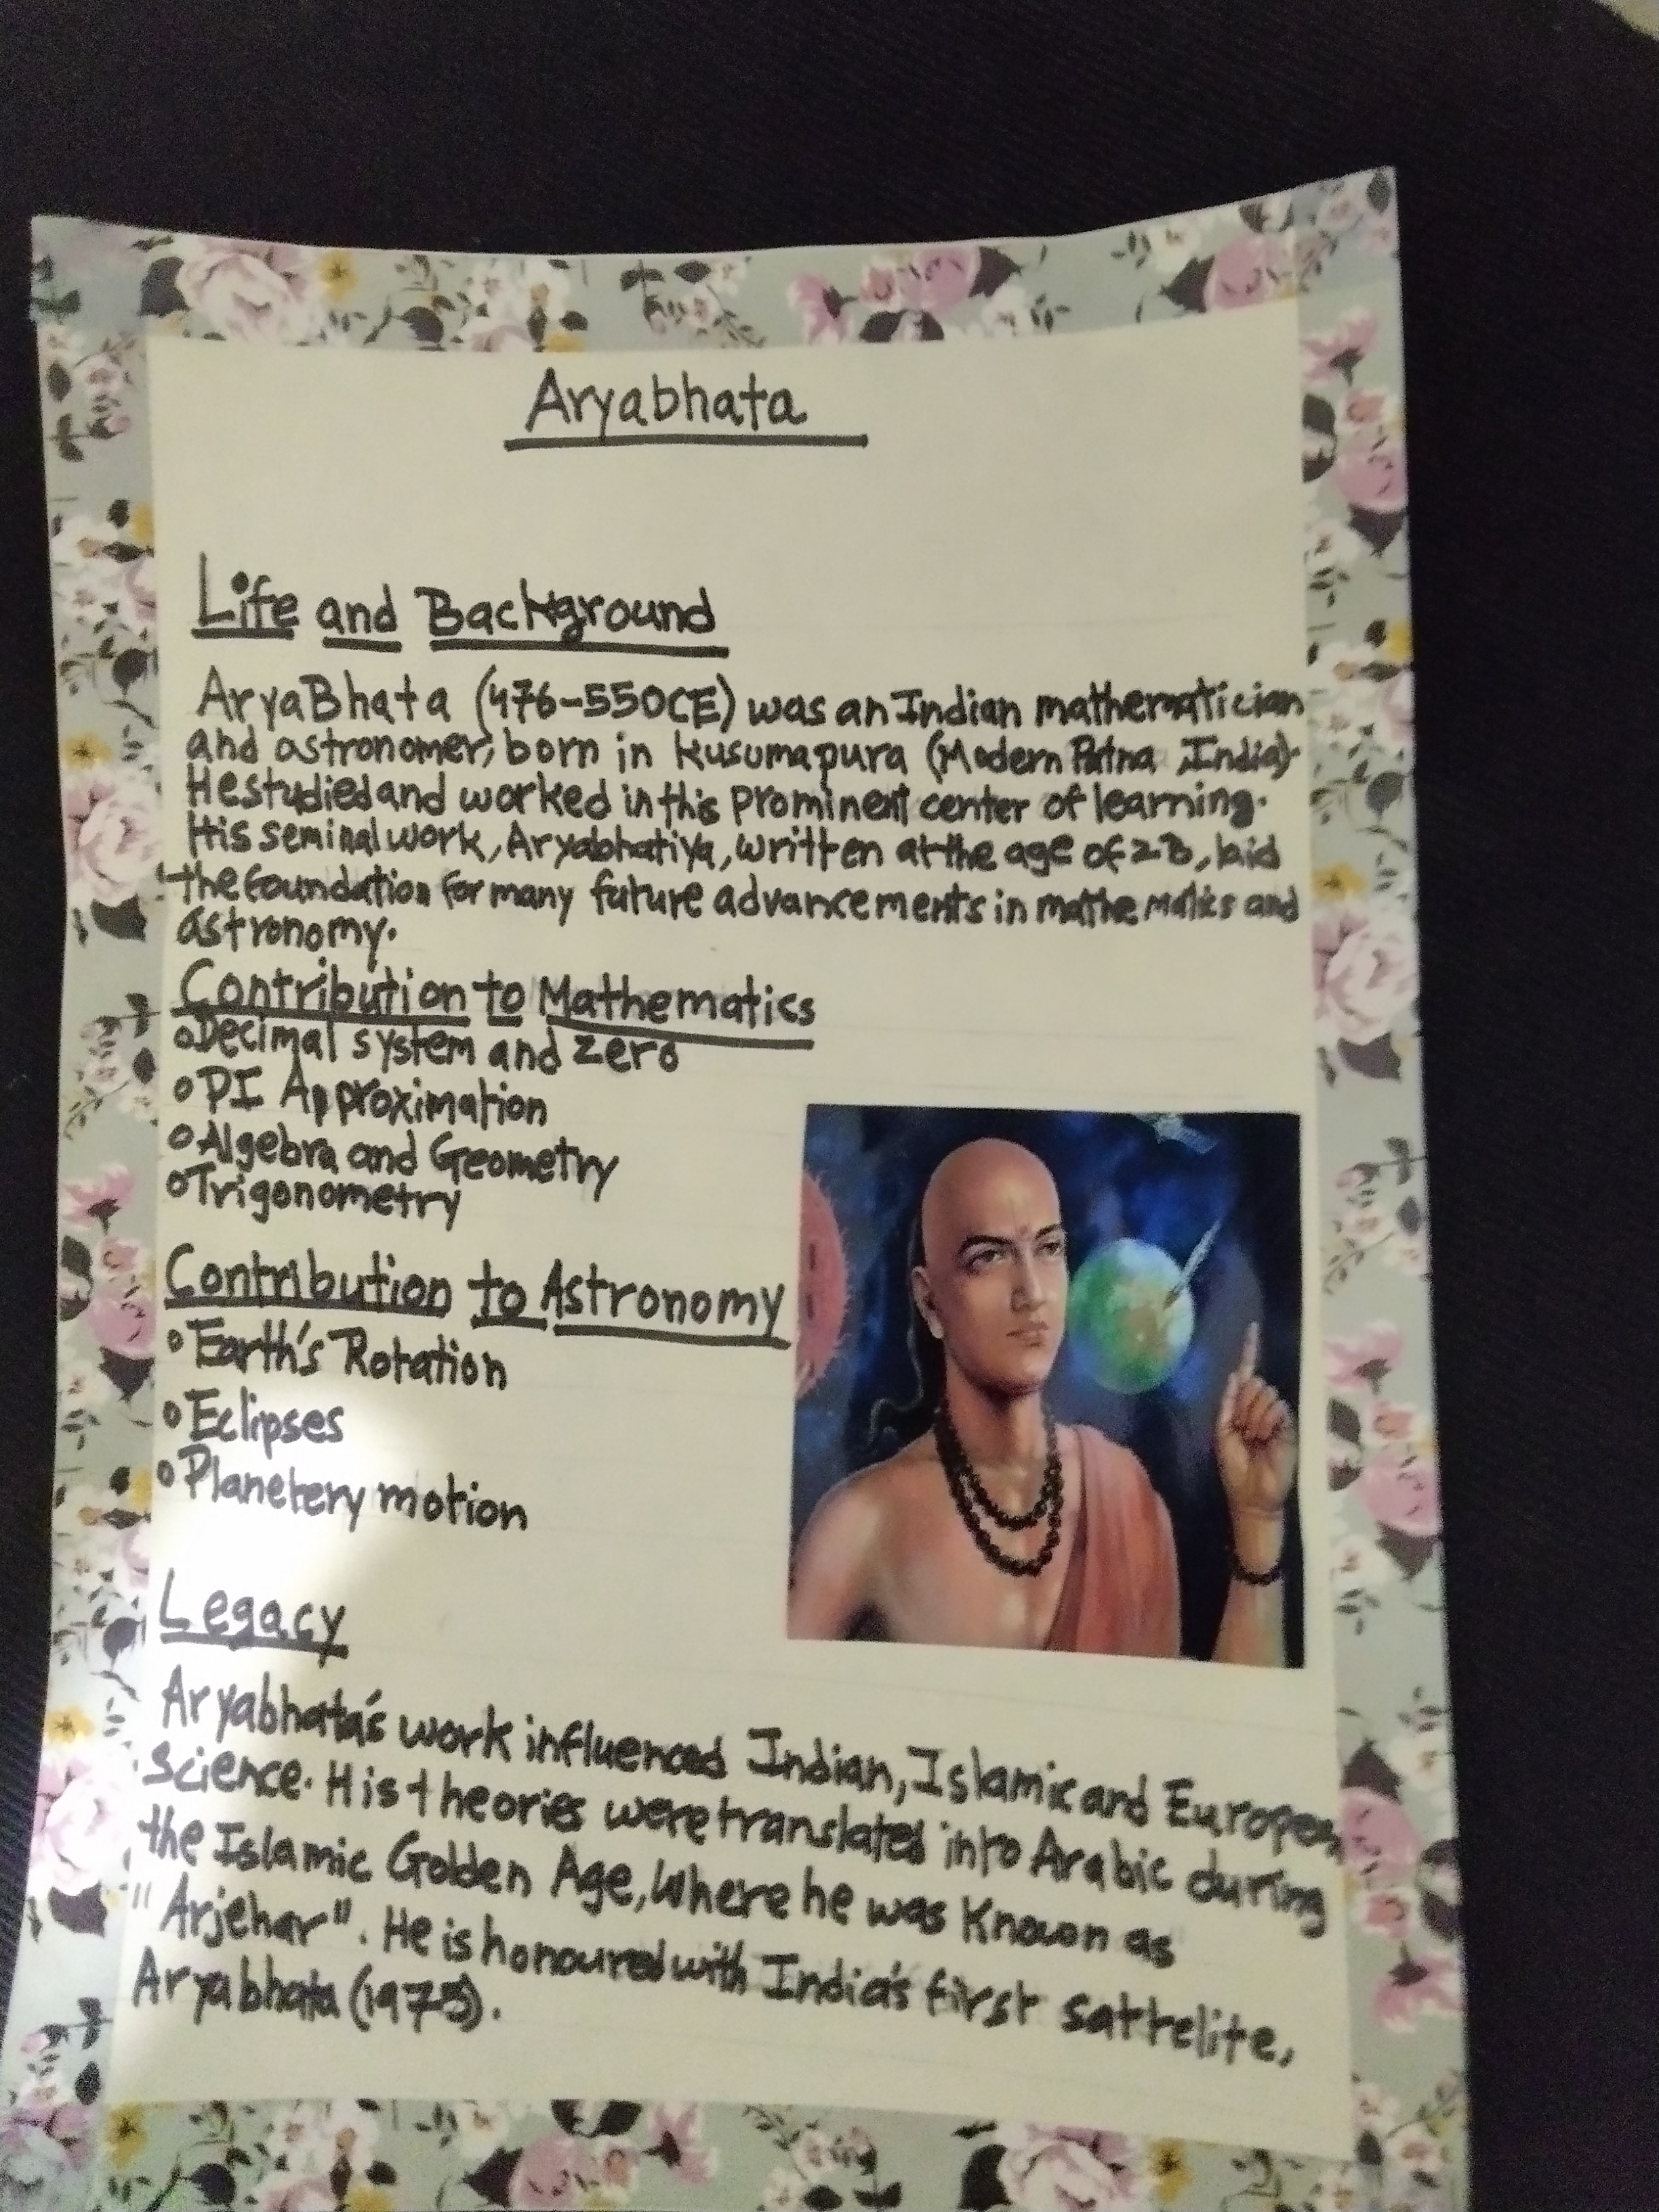 Aryabhata
Life and Background
AryaBhata (476-550CE) was an Indian mathematician
and astronomer, born in Kusumapura (Modern Patna, India).
He studied and worked in this prominent center of learning.
His seminal work, Aryabhatiya, written at the age of 23, laid
the foundation for many future advancements in mathematics and
astronomy.
Contribution to Mathematics
Decimal system and zero
PI Approximation
Algebra and Geometry
Trigonometry
Contribution to Astronomy
Earth's Rotation
Eclipses
Planetery motion
Legacy
Aryabhata's work influenced Indian, Islamic and Europen
science. His theories were translated into Arabic during
the Islamic Golden Age, Where he was Known as
"Arjehar". He is honoured with India's first sattelite,
Aryabhata (1975).